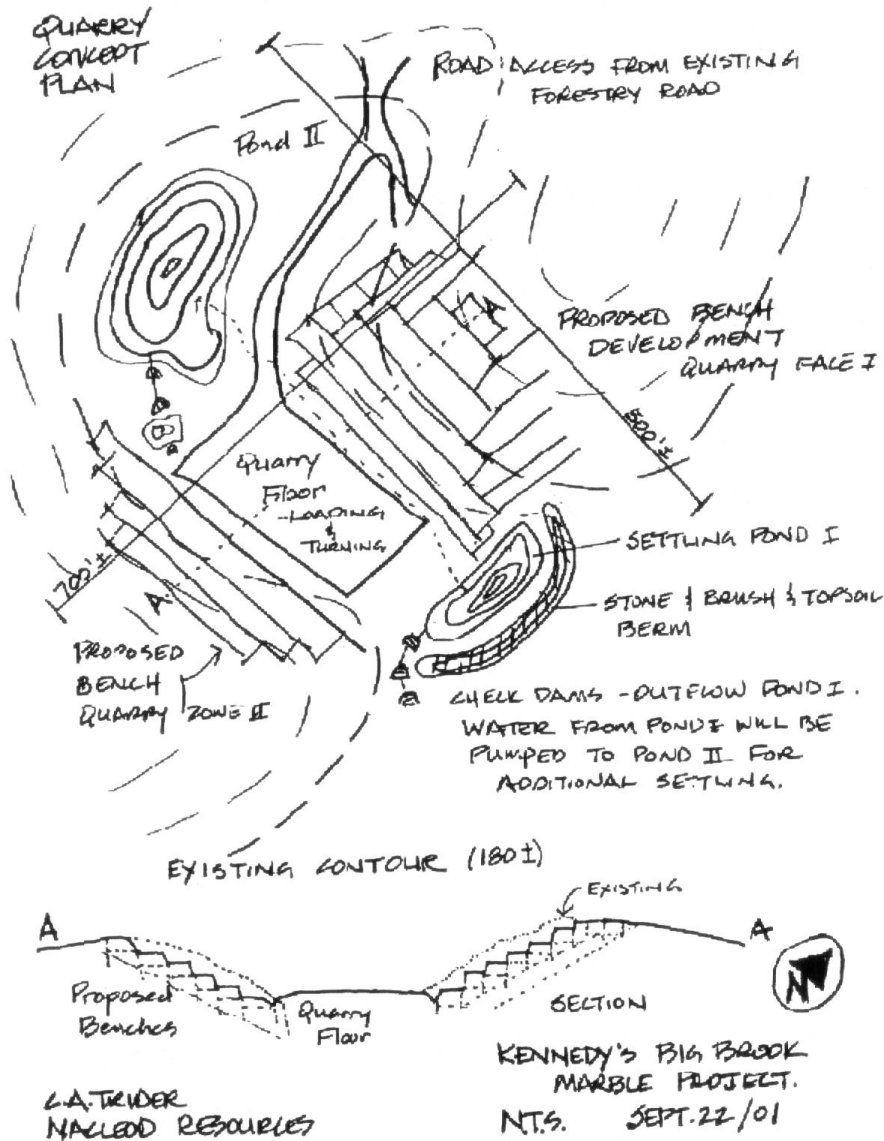 QUARRY
CONCEPT
PLAN
ROAD ACCESS FROM EXISTING
FORESTRY ROAD
Pond II
A
PROPOSED BENCH
DEVELOPMENT
QUARRY FACE I
500'±
Quarry
Floor
-LOADING
&
TURNING
700'±
A
SETTLING POND I
STONE & BRUSH & TOPSOIL
BERM
PROPOSED
BENCH
QUARRY ZONE II
CHECK DAMS - OUTFLOW POND I.
WATER FROM POND I WILL BE
PUMPED TO POND II FOR
ADDITIONAL SETTLING.
EXISTING CONTOUR (180±)
EXISTING
A
A
Proposed
Benches
Quarry
Floor
SECTION
N
KENNEDY'S BIG BROOK
MARBLE PROJECT.
C.A. TRIDER
MACLEOD RESOURCES
N.T.S. SEPT. 22/01